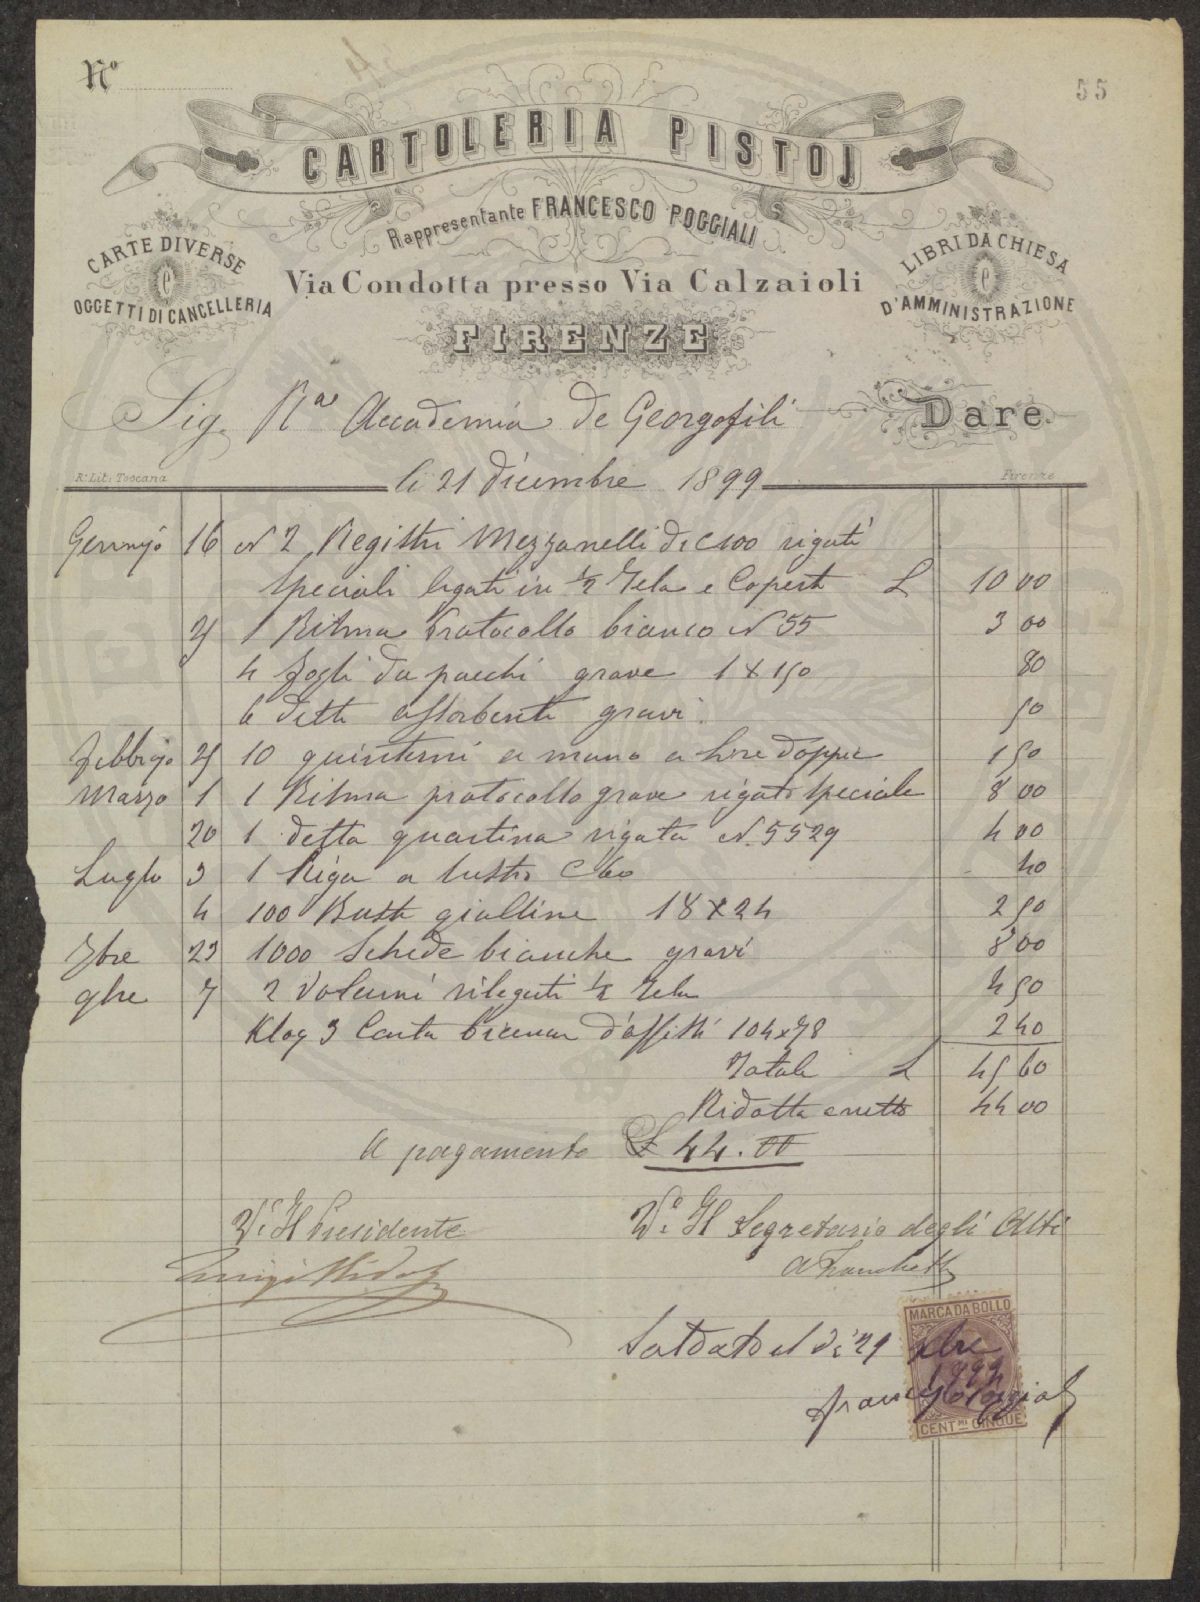 Nº
55
CARTOLERIA PISTOJ
Rappresentante FRANCESCO POGGIALI
CARTE DIVERSE
e
OGGETTI DI CANCELLERIA
LIBRI DA CHIESA
e
D'AMMINISTRAZIONE
Via Condotta presso Via Calzaioli
FIRENZE
Sig. Rª Accademia de Georgofili Dare
R. Lit. Toscana Firenze
li 21 dicembre 1899
Gennajo 16 N 2 Registri Mezzanelli di C 100 rigati
speciali legati in ½ Tela e Copert L 10 00
1 Risma Protocollo bianco N 55 3 00
4 fogli da pacchi grave 1 x 150 80
6 detti assorbenti gravi 50
Febbrajo 10 quinterni a mano a Lire doppie 1 50
Marzo 1 1 Risma protocollo grave rigato speciale 8 00
20 1 detta quartina rigata N. 5529 4 00
Luglio 3 1 Riga a lustro C 60 40
4 100 Buste gialline 18 x 24 2 50
7bre 23 1000 Schede bianche gravi 8 00
9bre 7 2 Volumi rilegati ½ Tela 4 50
Klog 3 Carta d'affissi 104 x 78 2 40
Totale L 45 60
Ridotta a netto 44 00
A pagamento £ 44.00
Vº Il Presidente
Vº Il Segretario degli Atti
Luigi Ridolfi
A Franchetti
Saldato il dì 21 xbre
1899
Francesco Poggiali
MARCA DA BOLLO
CENT.MI CINQUE